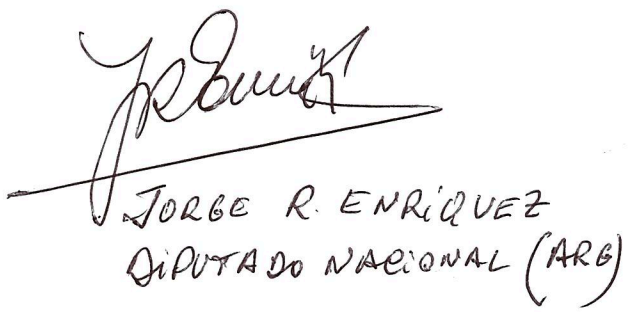 JORGE R. ENRiQUEZ
DiPUTADO NACiONAL (ARG)